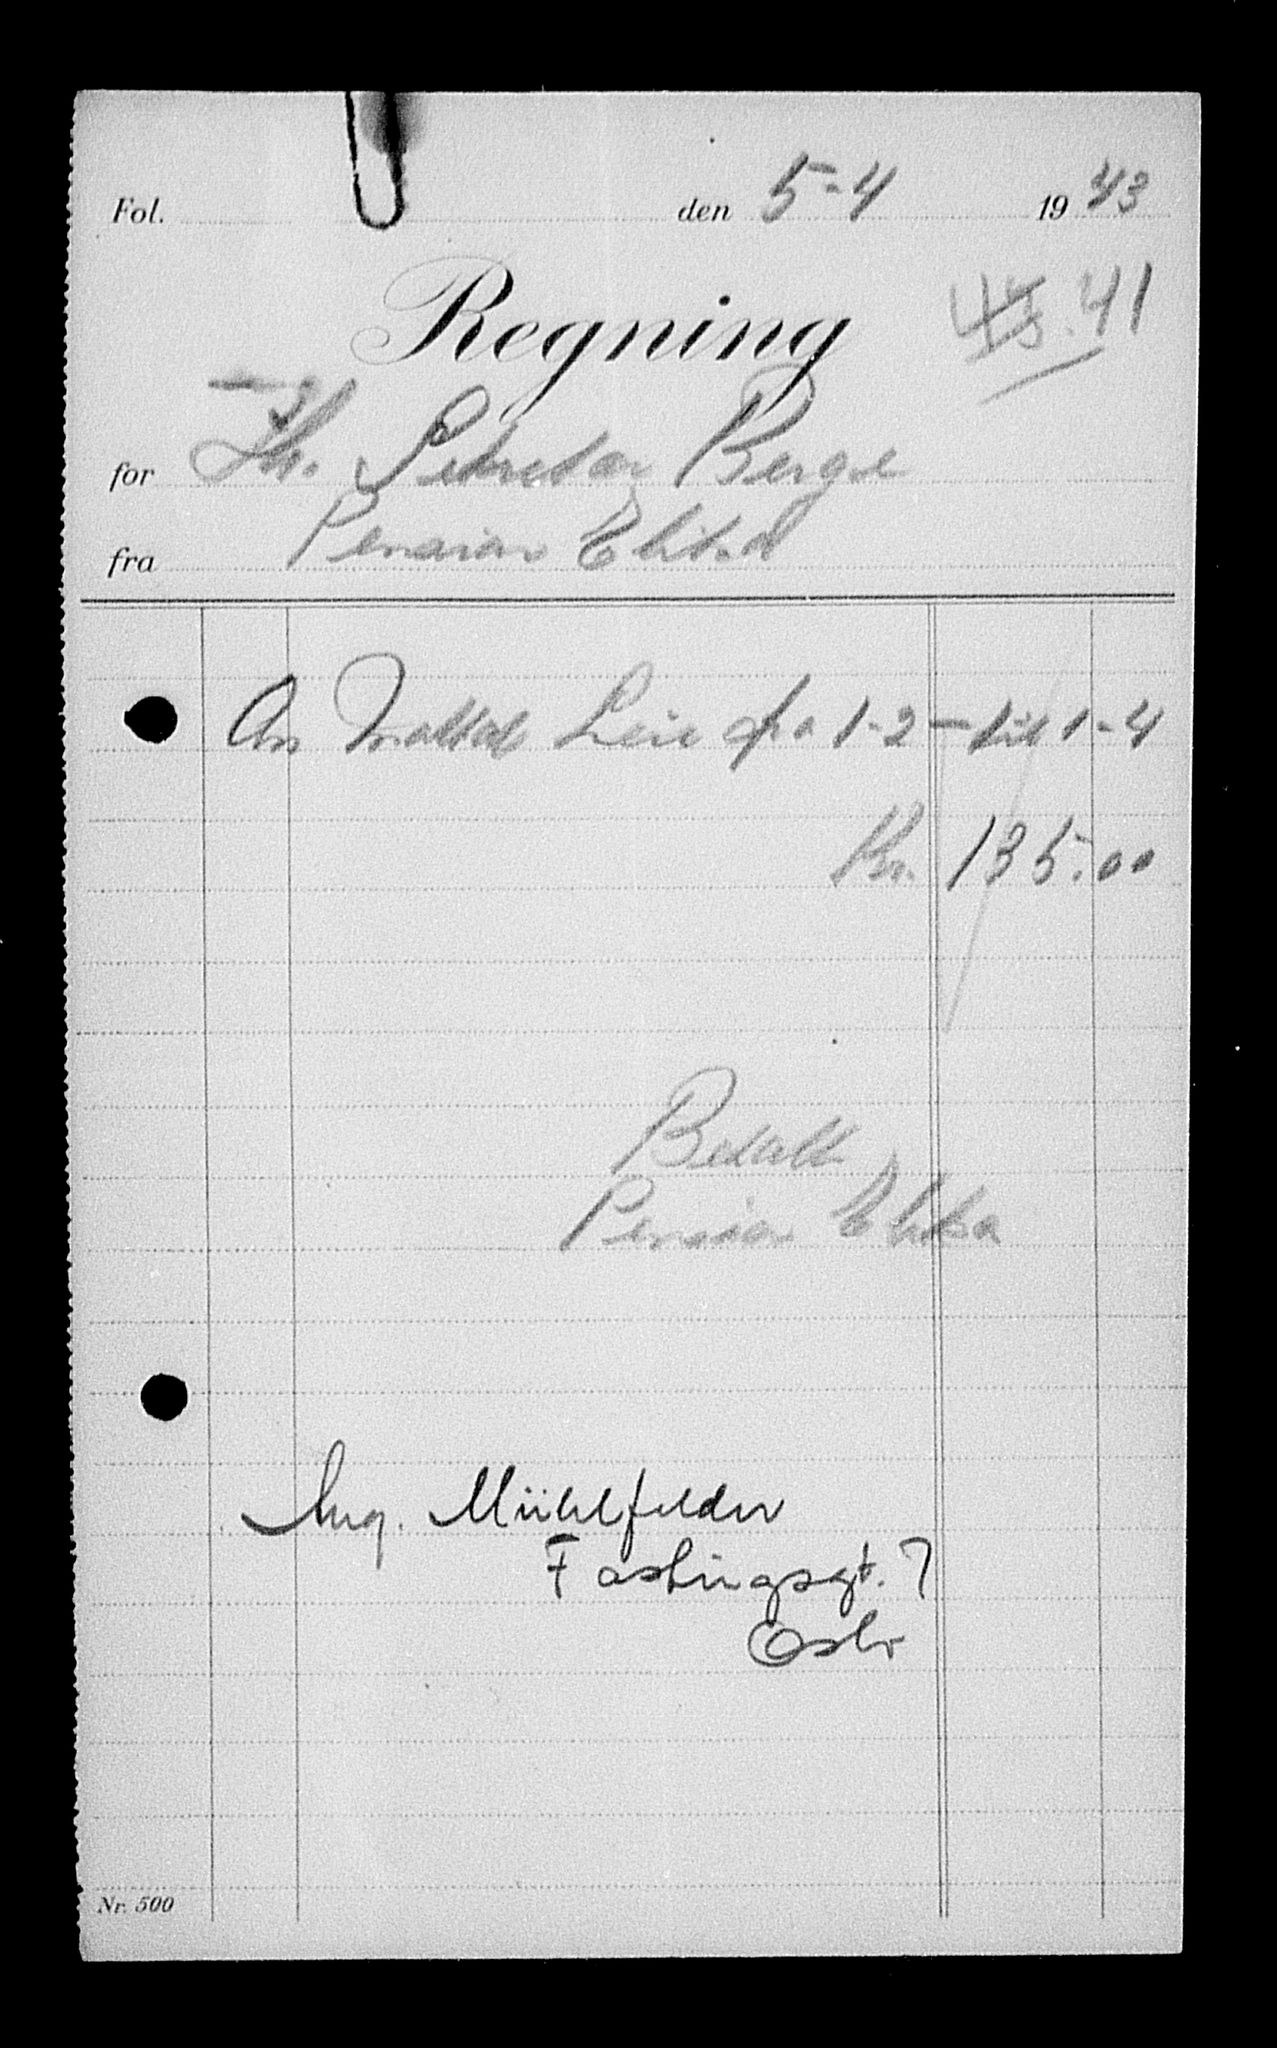 Fol. den 5-4 1943
41
Regning
for Hr. Sekretær Berge
fra Pension Elita
An Leie fra 1-2 - til 1-4
Kr. 135.00
Betalt
Pension Elita
Ang. Mühlfelder
Fastingsgt. 7
Oslo
Nr. 500